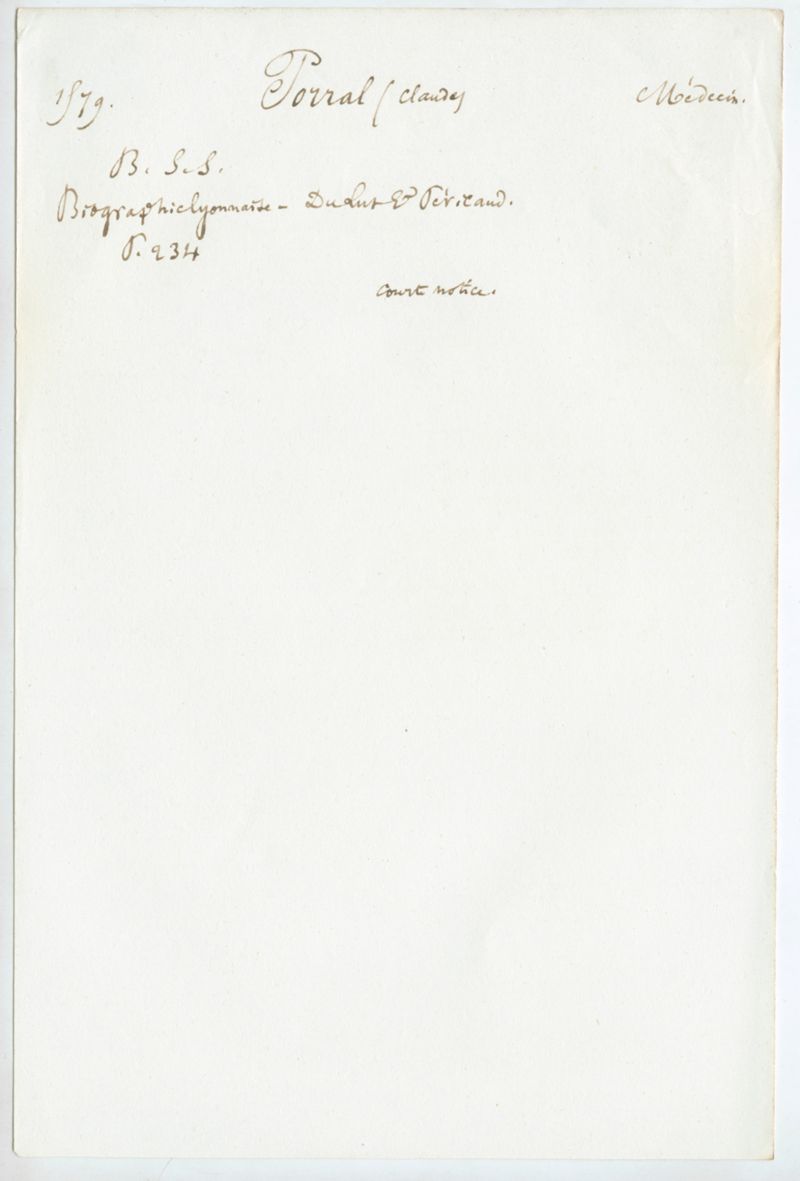 1579. Porral (Claude) Médecin.
B. S. S.
Biographie lyonnaise - Du Lut & Péricaud.
P. 234
Court notice.